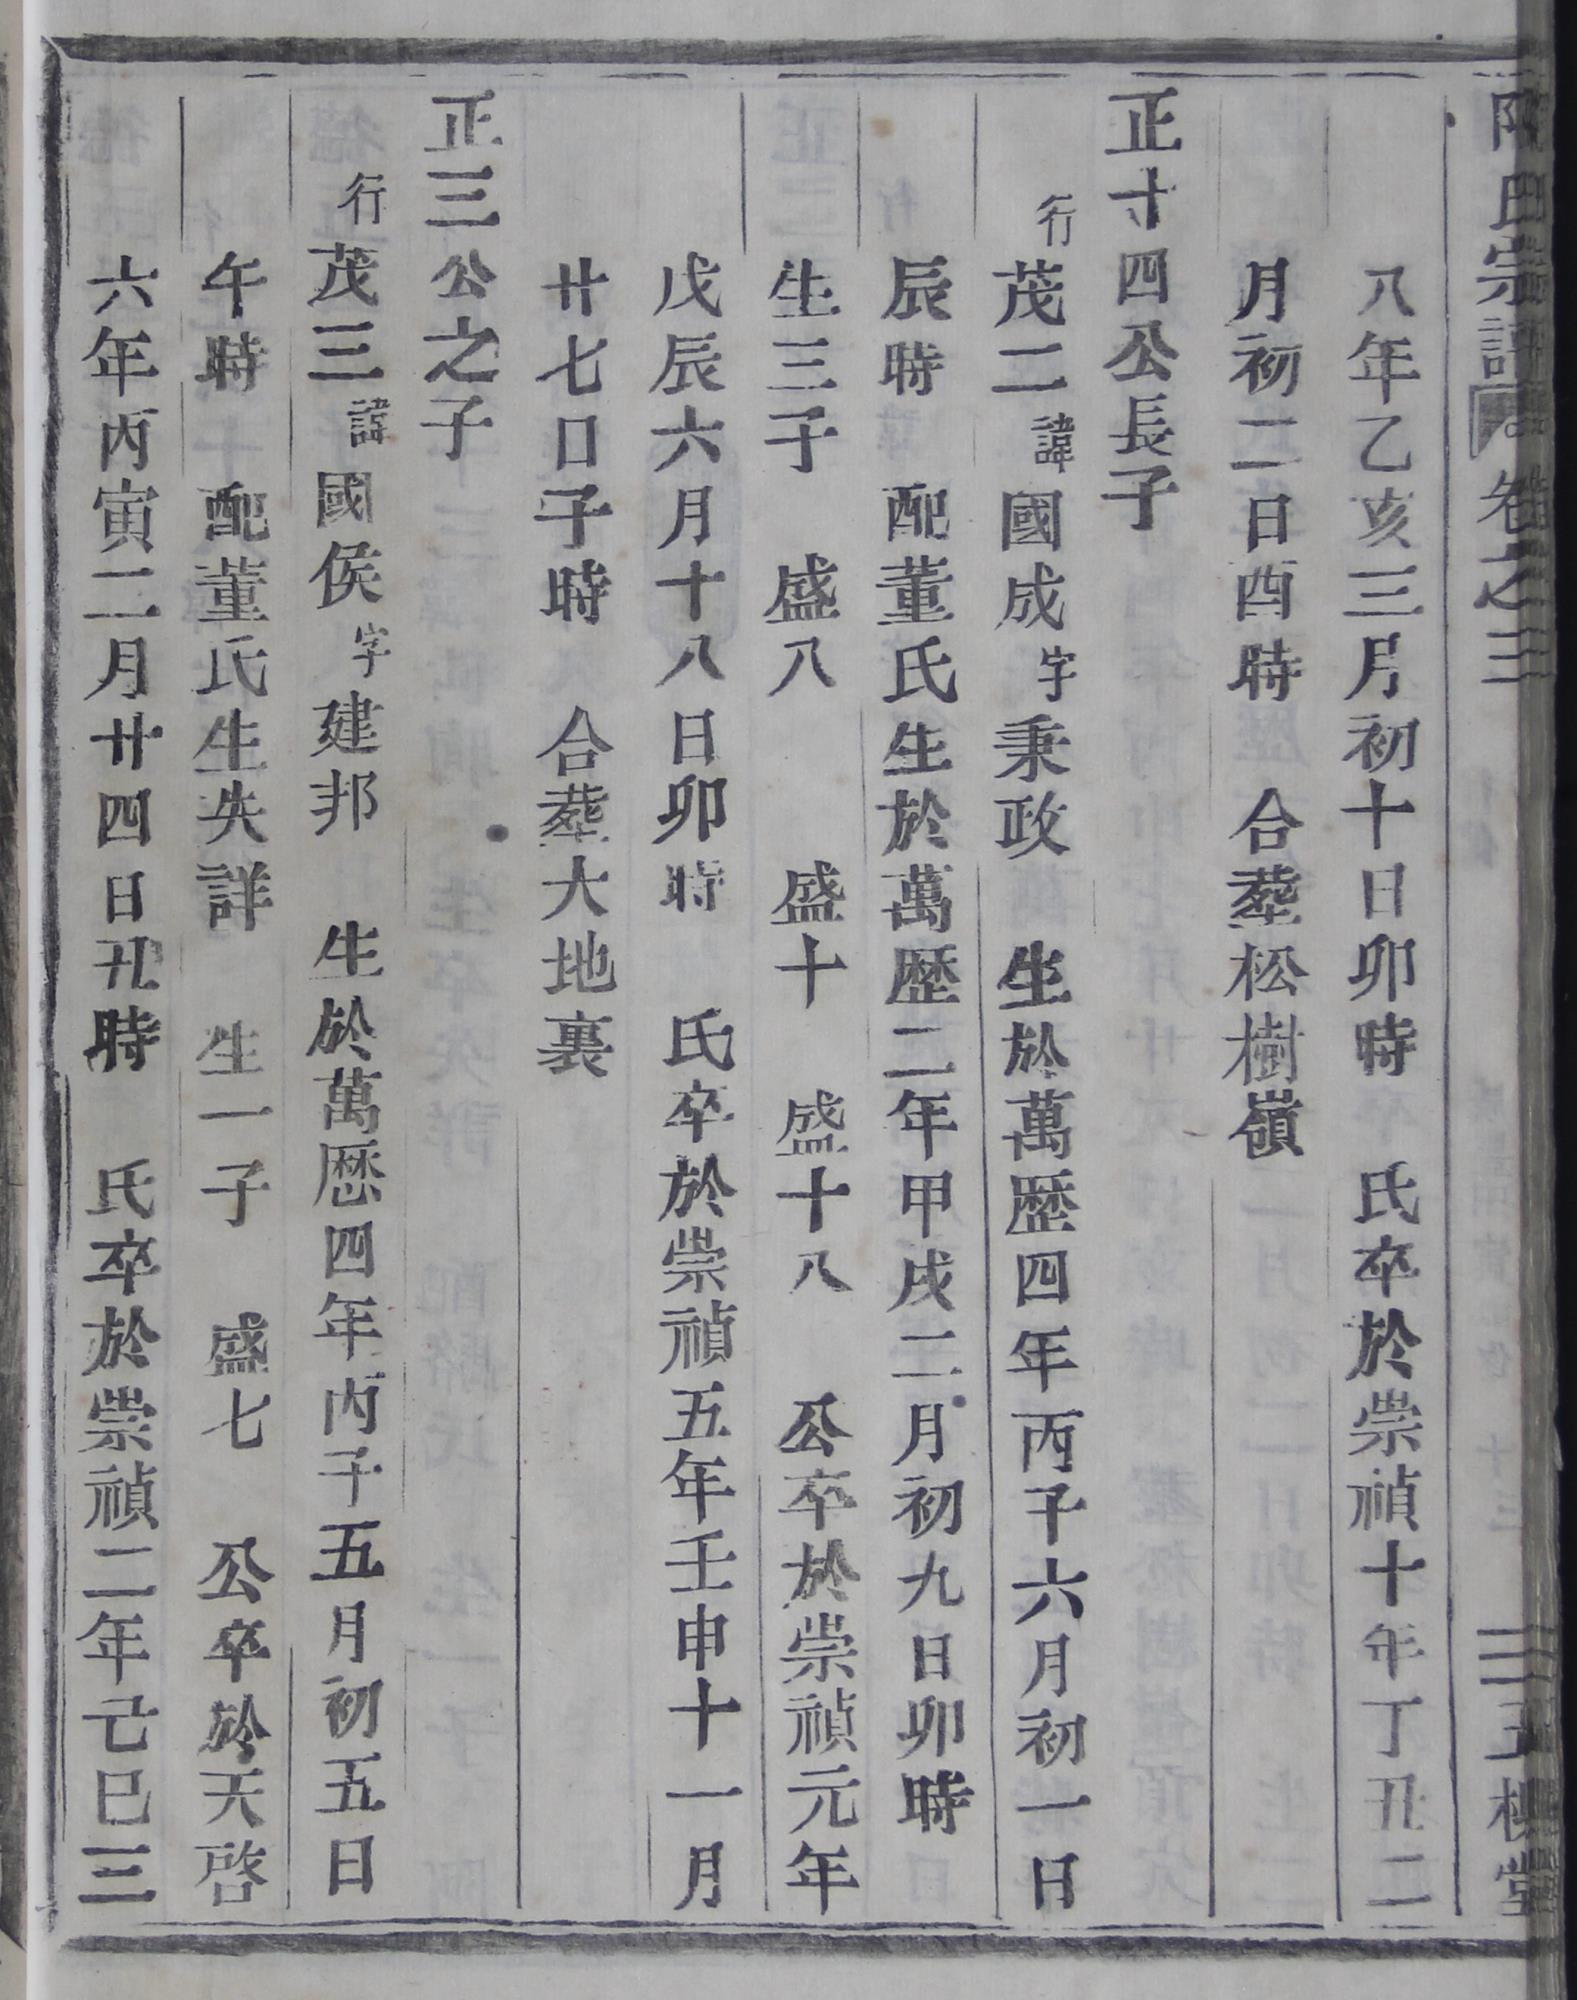 氏宗譜 卷之三 三 堂
八年乙亥三月初十日卯時 氏卒於崇禎十年丁丑二
月初二日酉時 合塟松樹嶺
正十四公長子
行茂二諱國成字秉政 生於萬歷四年丙子六月初一日
辰時 配董氏生於萬歷二年甲戌二月初九日卯時
生三子 盛八 盛十 盛十八 公卒於崇禎元年
戊辰六月十八日卯時 氏卒於崇禎五年壬申十一月
廿七口子時 合塟大地裏
正三公之子
行茂三諱國侯字建邦 生於萬歷四年丙子五月初五日
午時 配董氏生失詳 生一子 盛七 公卒於天啓
六年丙寅二月廿四日丑時 氏卒於崇禎二年己巳三